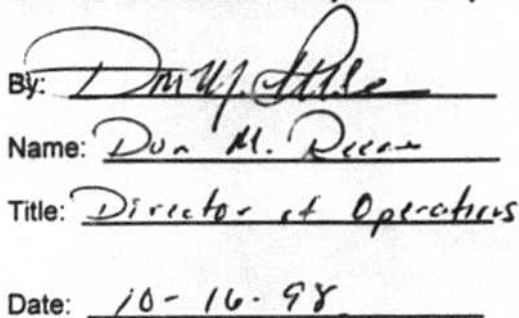 By:
Name: Don M.
Title: Director of Operations
Date: 10-16-98